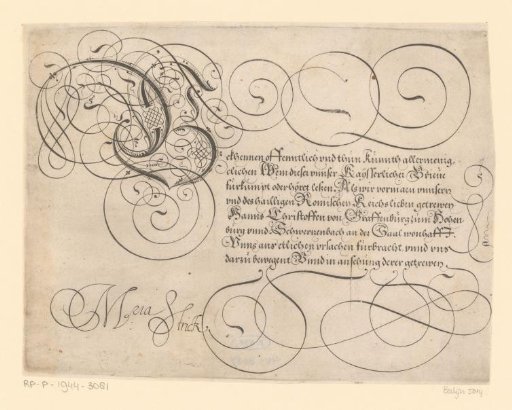 Bekhennen offentlich vnd thun Kunnth allermenig,
clichen Wem dieser vnnser Kaÿsserlicher Brieue
furkumpt oder höret lesen, Als wir vormaln vnnsern
vnd des haÿligen Romischen Reichs lieben getrewen
Hanns Christoffen von Greÿffenburg zum Hohen
burg vnnd Schwertzenbach an der Saal wonhafft.
Vnns aus ettlichen vrsachen furbracht, vnnd vns
darzu bewegent Vnnd in ansehung derer getrewen,
Maria Strick
RP-P-1944-3081